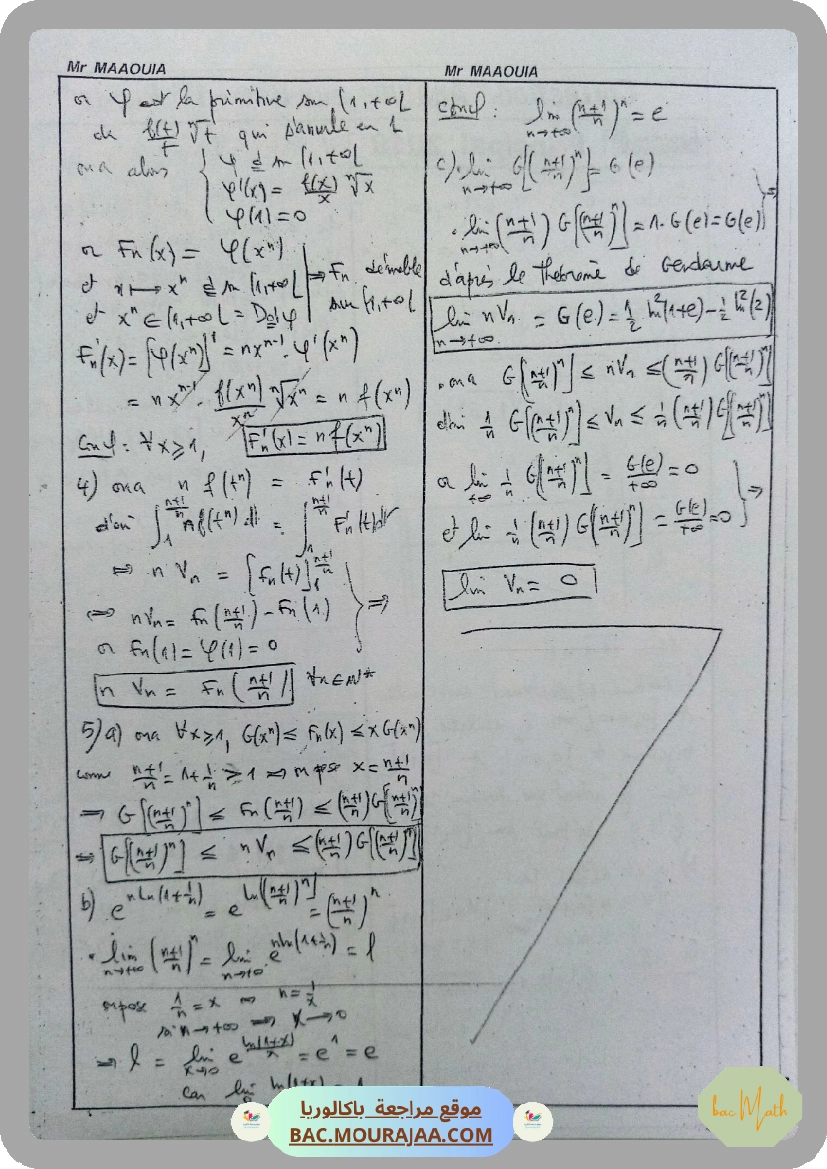 Mr MAAOUIA
or φ est la primitive sur [1,+∞[
de f(t)/t ⁿ√t qui s'annule en 1
on a alors { φ d sur [1,+∞[
φ'(x) = f(x)/x ⁿ√x
φ(1) = 0
or Fn(x) = φ(xⁿ)
et x ⟼ xⁿ d sur [1,+∞[ ⇒ Fn dérivable sur [1,+∞[
et xⁿ ∈ [1,+∞[ = Dφ
Fn'(x) = [φ(xⁿ)]' = nxⁿ⁻¹ · φ'(xⁿ)
= nxⁿ⁻¹ · f(xⁿ)/xⁿ ⁿ√xⁿ = n f(xⁿ)
Concl : ∀x ⩾ 1, Fn'(x) = n f(xⁿ)
4) on a n f(tⁿ) = Fn'(t)
d'où ∫₁^((n+1)/n) n f(tⁿ) dt = ∫₁^((n+1)/n) Fn'(t) dt
⇒ n Vn = [Fn(t)]₁^((n+1)/n)
⇒ nVn = Fn((n+1)/n) − Fn(1)
or Fn(1) = φ(1) = 0 ⇒
n Vn = Fn((n+1)/n) ∀n∈IN*
5) a) on a ∀x⩾1, G(xⁿ) ≤ Fn(x) ≤ x G(xⁿ)
comme (n+1)/n = 1 + 1/n ⩾ 1 ⇒ on pose x = (n+1)/n
⇒ G[((n+1)/n)ⁿ] ≤ Fn((n+1)/n) ≤ ((n+1)/n) G[((n+1)/n)ⁿ]
⇒ G[((n+1)/n)ⁿ] ≤ n Vn ≤ ((n+1)/n) G[((n+1)/n)ⁿ]
b) e^(n ln(1+1/n)) = e^(ln[((n+1)/n)ⁿ]) = ((n+1)/n)ⁿ
• lim n→+∞ ((n+1)/n)ⁿ = lim n→+∞ e^(n ln(1+1/n)) = l
on pose 1/n = x ⇒ n = 1/x
si n→+∞ ⇒ x→0
⇒ l = lim x→0 e^(ln(1+x)/x) = e¹ = e
car lim ln(1+x)
Mr MAAOUIA
Concl : lim n→+∞ ((n+1)/n)ⁿ = e
c) • lim n→+∞ G[((n+1)/n)ⁿ] = G(e)
• lim n→+∞ ((n+1)/n) G[((n+1)/n)ⁿ] = 1·G(e) = G(e) ⇒
d'après le théorème de Gendarme
lim n→+∞ nVn = G(e) = 1/2 ln²(1+e) − 1/2 ln²(2)
• on a G[((n+1)/n)ⁿ] ≤ nVn ≤ ((n+1)/n) G[((n+1)/n)ⁿ]
d'où 1/n G[((n+1)/n)ⁿ] ≤ Vn ≤ 1/n ((n+1)/n) G[((n+1)/n)ⁿ]
or lim +∞ 1/n G[((n+1)/n)ⁿ] = G(e)/+∞ = 0
et lim 1/n ((n+1)/n) G[((n+1)/n)ⁿ] = G(e)/+∞ = 0 ⇒
lim Vn = 0
موقع مراجعة باكالوريا
BAC.MOURAJAA.COM
bac Math